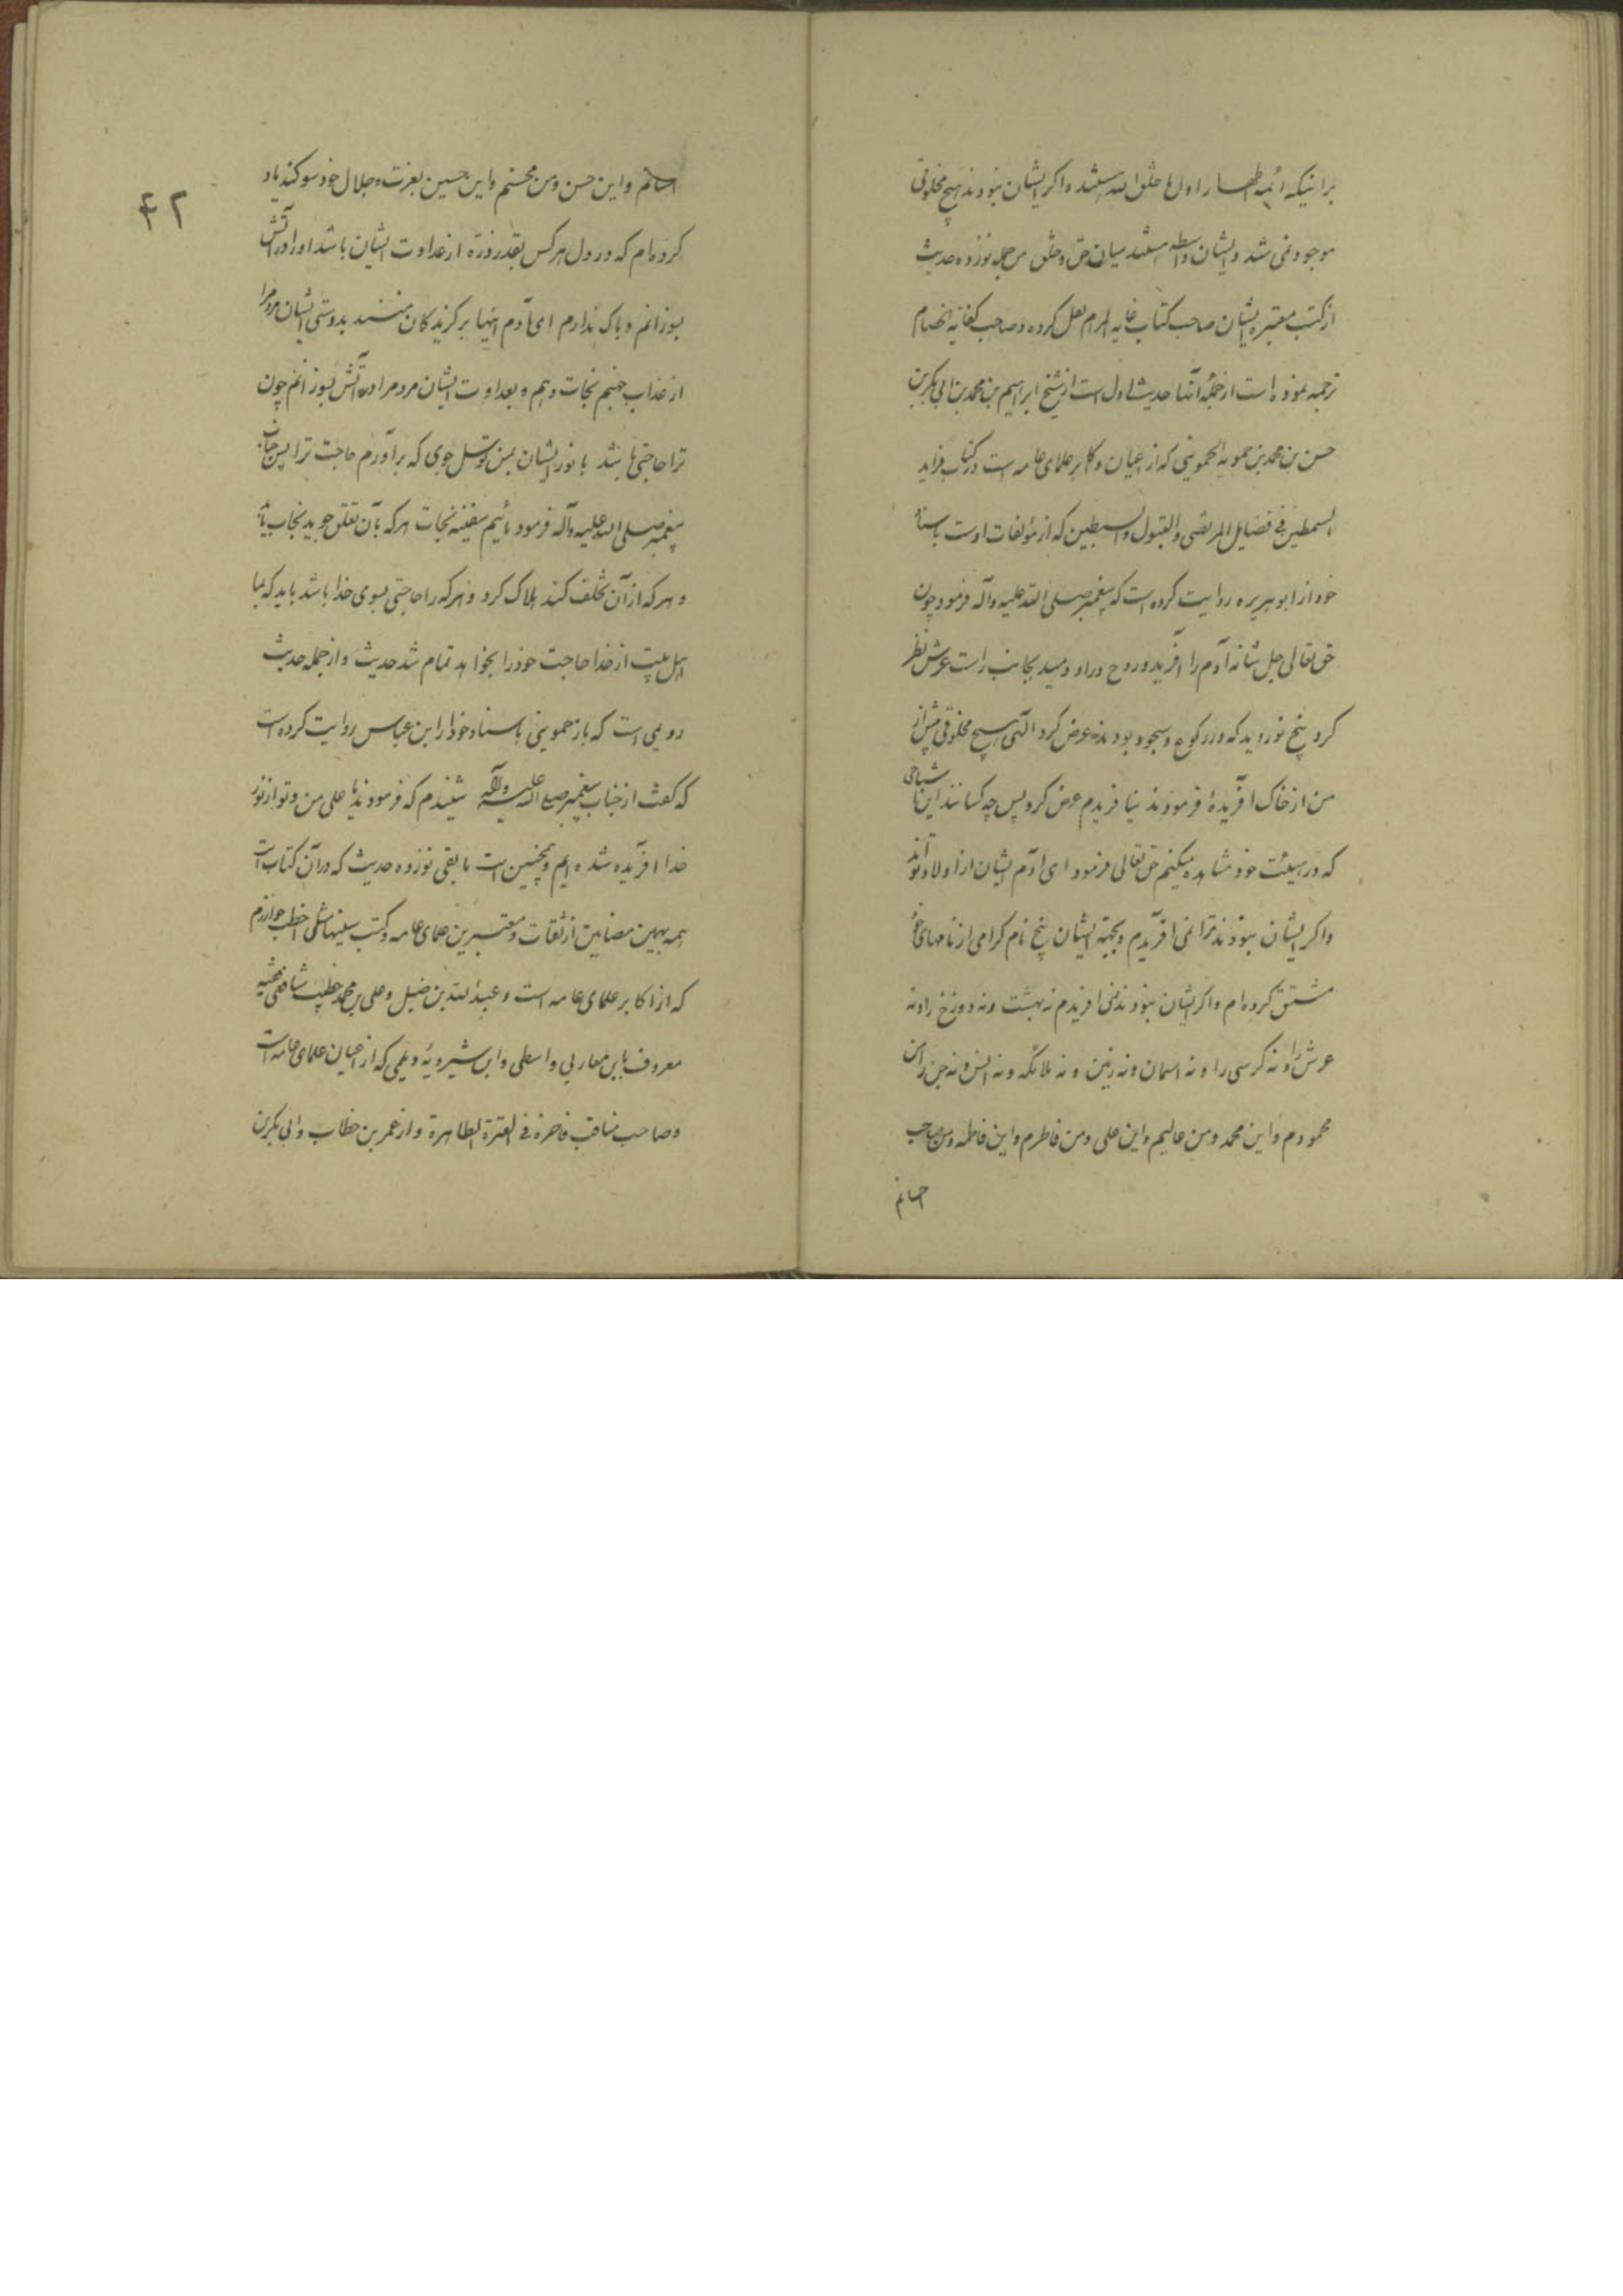 برانیکه ائمه اطهار اول ما خلق الله هستند و اکر ایشان نبودند هیچ مخلوقی
موجود نمی شد و ایشان واسطه هستند میان حق و خلق من جمله نوزده حدیث
از کتب معتبره ایشان صاحب کتاب غایه المرام نقل کرده و صاحب کفایة الخصام
ترجمه نموده است از جملهٔ آنها حدیث اول است از شیخ ابراهیم بن محمد بن ابی بکر بن
حسن بن محمد بن حمویه الحموینی که از اعیان و اکابر علمای عامه است در کتاب فراید
السمطین فی فضایل المرتضی والبتول والسبطین که از مؤلفات اوست باسناد
خود از ابوهریره روایت کرده است که پیغمبر صلی الله علیه وآله فرمود چون
حق تعالی جل شانه آدم را آفرید و روح در او دمید بجانب راست عرش نظر
کرد پنج نور دید که در رکوع و سجود بودند عرض کرد الهی هیچ مخلوقی پیش از
من از خاک آفریدهٔ فرمودند نیافریدم عرض کرد پس چه کسانند این اشباحی
که در هیئت خود مشاهده میکنم حق تعالی فرمود ای آدم ایشان از اولاد تواند
و اکر ایشان نبودند ترا نمی آفریدم و بجهة ایشان پنج نام کرامی از نامهای خود
مشتق کرده ام و اکر ایشان نبودند نمی افریدم نه بهشت و نه دوزخ را و نه
عرش را و نه کرسی را و نه اسمان و نه زمین و نه ملائکه و نه انس و نه جن را من
محمودم و این محمد و من عالیم و این علی و من فاطرم و این فاطمه و من صاحب
احسانم
۴۲
احسانم و این حسن و من محسنم و این حسین بعزت و جلال خود سوکند یاد
کرده ام که در دل هر کس بقدر ذرّه از عداوت ایشان باشد او را در آتش
بسوزانم و باک ندارم ای آدم اینها برکزیدکان منند بدوستی ایشان مردم را
از عذاب جهنم نجات دهم و بعداوت ایشان مردم را در آتش بسوزانم چون
ترا حاجتی باشد با نور ایشان بمن توسل جوی که برآورم حاجت ترا پس جناب
پیغمبر صلی الله علیه وآله فرمود مائیم سفینه نجات هر که بآن تعلق جوید نجات یابد
و هر که از آن تخلف کند هلاک کردد و هر که را حاجتی بسوی خدا باشد باید که بما
اهل بیت از خدا حاجت خود را بخواهد تمام شد حدیث و از جمله حدیث
دویمی است که باز حموینی باسناد خود از ابن عباس روایت کرده است
که کفت از جناب پیغمبر صلی الله علیه وآله شنیدم که فرمودند یا علی من و تو از نور
خدا افریده شده ایم و همچنین است مابقی نوزده حدیث که در آن کتاب است
همه بهمین مضامین از ثقات و معتبرین علمای عامه و کتب سنیها مثل اخطب خوارزم
که از اکابر علمای عامه است و عبدالله بن حنبل و علی بن محمد خطیب شافعی فقیه
معروف بابن مغازلی واسطی و ابن شیرویهٔ دیلمی که از اعیان علمای عامه است
و صاحب مناقب فاخره فی العترة الطاهرة و از عمر بن خطاب و ابی بکر بن